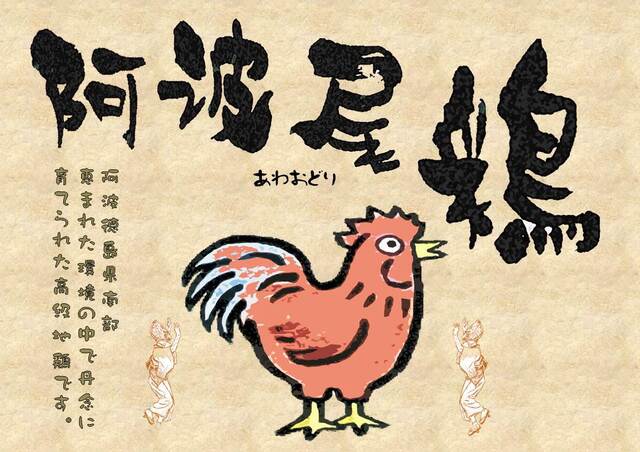 阿波尾鶏
あわおどり
阿波徳島県南部
恵まれた環境の中で丹念に
育てられた高級地鶏です。